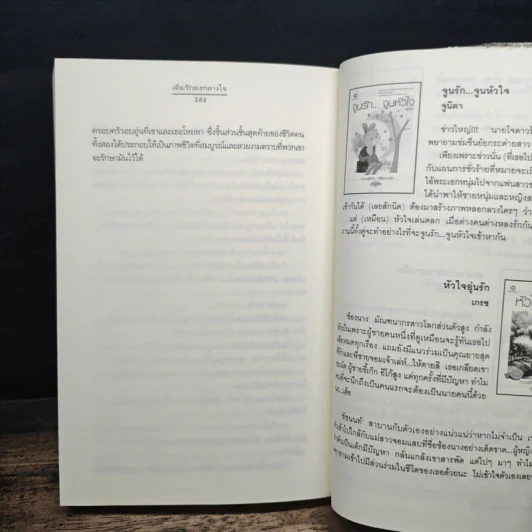 เติมรักลงกลางใจ
344
ครอบครัวอบอุ่นที่เขาและเธอโหยหา ซึ่งชิ้นส่วนชิ้นสุดท้ายของชีวิตคน
ทั้งสองได้ประกอบให้เป็นภาพชีวิตที่สมบูรณ์และสวยงามตราบที่พวกเขา
จะรักษามันไว้ได้
จูนรัก...จูนหัวใจ
จูนรัก...จูนหัวใจ
จูนิตา
ข่าวใหญ่!!! นายโจดาวร้
พยายามข่มขืนยัยกระต่ายสาว
เพียงเพราะข่าวนั่น (ที่เป็
กับแผนการชั่วร้ายที่หมายจะเป็
ไอ้พระเอกหนุ่มไปจากแฟนสาวข
ได้นำพาให้ชายหนุ่มและหญิงส
เข้ากันได้ (เลยสักนิด) ต้องมาสร้างภาพหลอกลวงใครๆ ว่า
แต่ (เหมือน) หัวใจเล่นตลก เมื่อต่างคนต่างหลงรักกัน
งานนี้ทั้งคู่จะทำอย่างไรที่จะจูนรัก...จูนหัวใจเข้าหากัน
หัวใจอุ่นรัก
เกรซ
หัว
ช้องนาง มัณฑนากรสาวโลกส่วนตัวสูง กำลัง
เพราะผู้ชายคนหนึ่งที่ดูเหมือนจะรู้ทันเธอไป
หมดทุกเรื่อง แถมยังมีแนวร่วมเป็นคุณยายสุด
รักและพี่ชายจอมเจ้าเล่ห์...ให้ตายสิ เธอเกลียดเขา
ผู้ชายขี้เก๊ก อีโก้สูง แต่ทุกครั้งที่มีปัญหา ทำไม
ที่จะนึกถึงเป็นคนแรกจะต้องเป็นนายคนนี้ด้วย
ชัชนนท์ สาบานกับตัวเองอย่างแน่วแน่ว่าหากไม่จำเป็น
เข้าไปใกล้กับแม่สาวจอมแสบที่ชื่อช้องนางอย่างเด็ดขาด...ผู้หญิง
เด็กมีปัญหา กลั่นแกล้งเขาสารพัด แต่ไปๆ มาๆ ทำไม
เข้าไปมีส่วนร่วมในชีวิตของเธอด้วยนะ ไม่เข้าใจตัวเองเลย